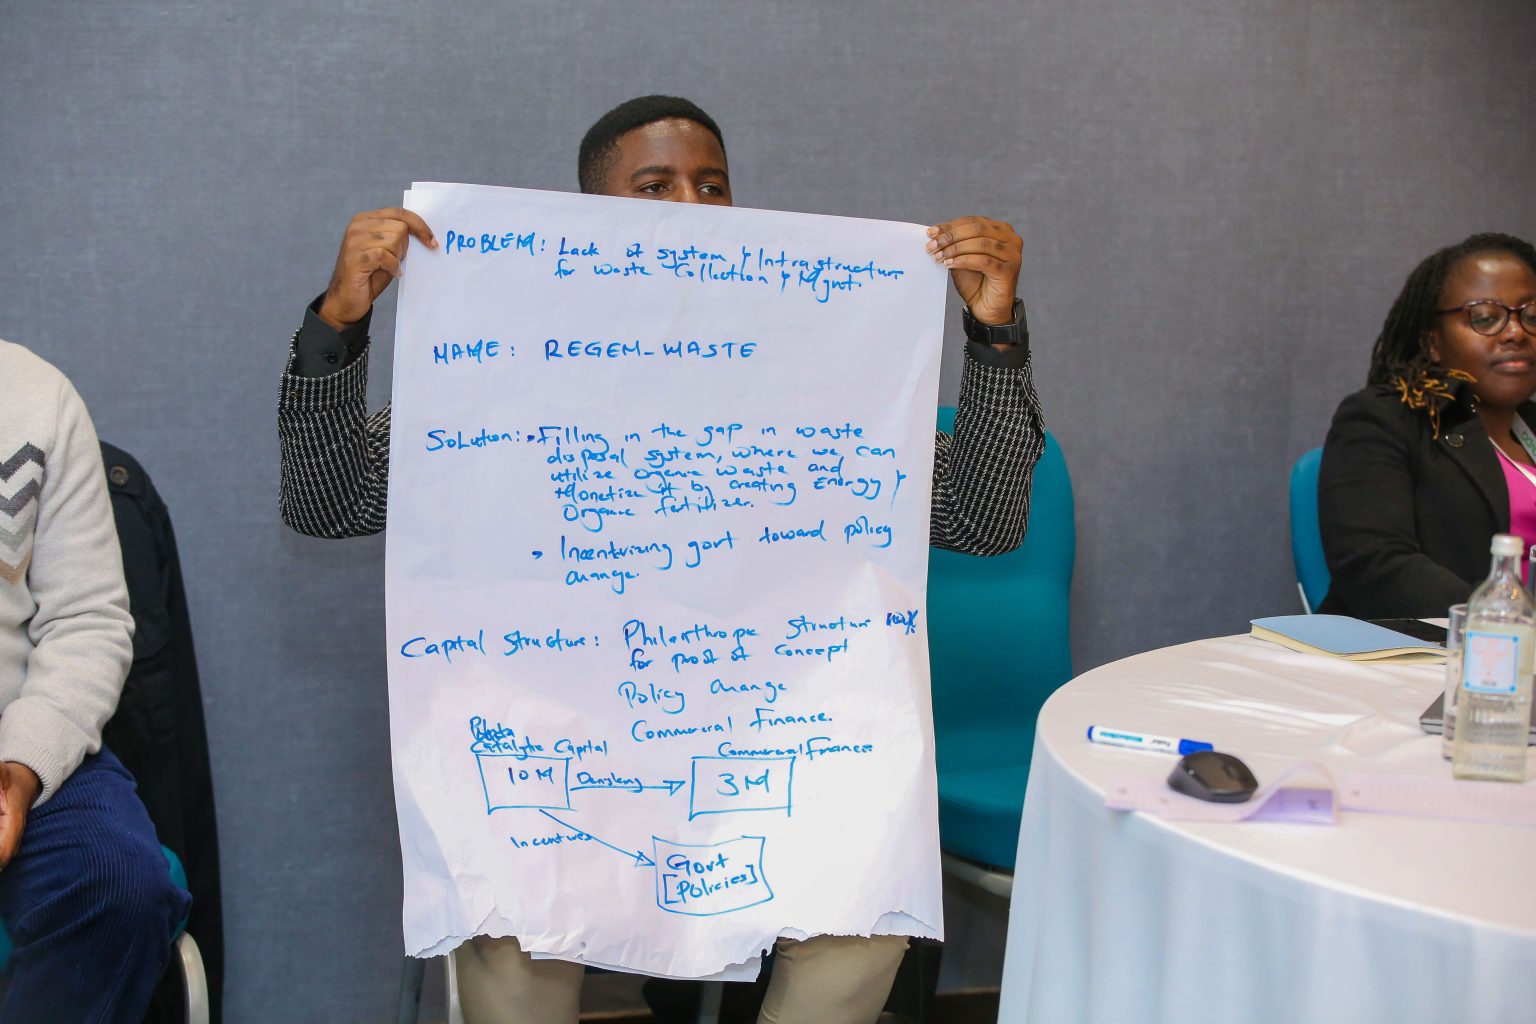 PROBLEM: Lack of system & Infrastructure
for Waste Collection & Mgnt.
NAME: REGEM-WASTE
Solution: Filling in the gap in waste
disposal system, where we can
utilize organic waste and
Monetize it by creating Energy &
Organic fertilizer.
Incentivizing govt toward policy
change.
Capital Structure: Philanthropic structure
for proof of concept
Policy change
Commercial Finance.
Catalytic Capital
Commercial finance
10M
3M
Incentives
Govt
[Policies]